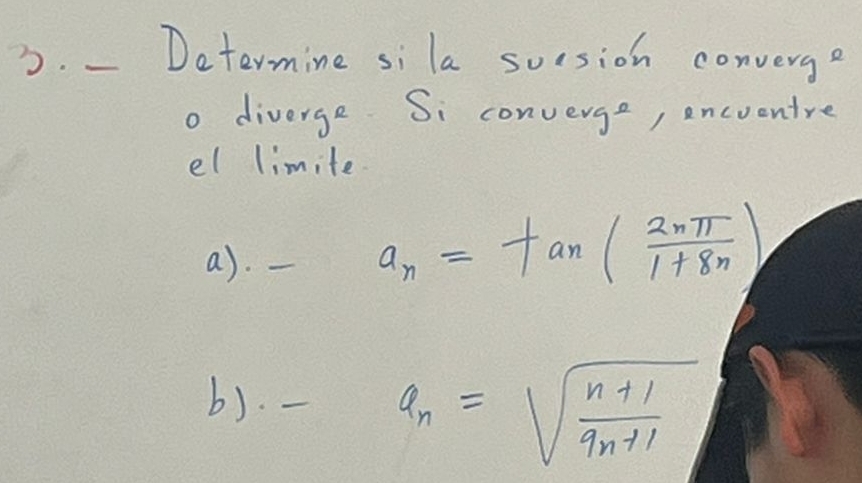 3.- Determine si la sucsión converge
o diverge. Si converge, encuentre
el limite.
a).- aₙ = tan ( 2nπ / 1+8n )
b).- aₙ = √( n+1 / 9n+1 )